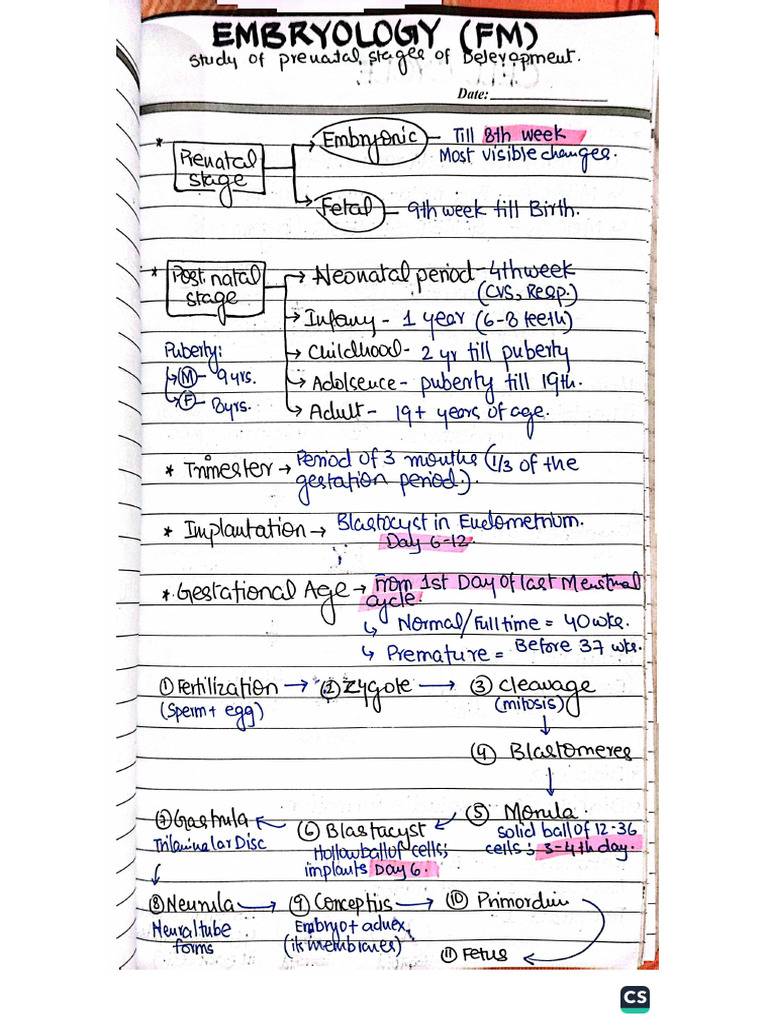 EMBRYOLOGY (FM)
Study of prenatal stages of Delevopment.
Date:
* Prenatal stage
Embryonic - Till 8th week
Most visible changes.
Fetal - 9th week till Birth.
* Post natal stage
Neonatal period - 4th week
(CVS, Resp.)
Infany - 1 year (6-8 teeth)
Childhood - 2 yr till puberty
Adolsence - puberty till 19th.
Adult - 19+ years of age.
Puberty:
M - 9 yrs.
F - 8yrs.
* Trimester → Period of 3 months (1/3 of the
gestation period.)
* Implantation → Blastocyst in Endometrium.
Day 6-12.
* Gestational Age → From 1st Day of last Menstrual
cycle.
↳ Normal/Full time = 40 wks.
↳ Premature = Before 37 wks.
① Fertilization → ② Zygote → ③ Cleavage
(Sperm + egg)
(mitosis)
④ Blastomeres
⑤ Morula.
solid ball of 12-36
cells; 3-4th day.
⑥ Blastacyst
Hollow ball of cells;
implants Day 6.
⑦ Gastrula
Trilaminalar Disc
⑧ Neurula → ⑨ Conceptus → ⑩ Primordium
Neural tube
forms
Embryo + adnex
(its membranes)
⑪ Fetus
CS